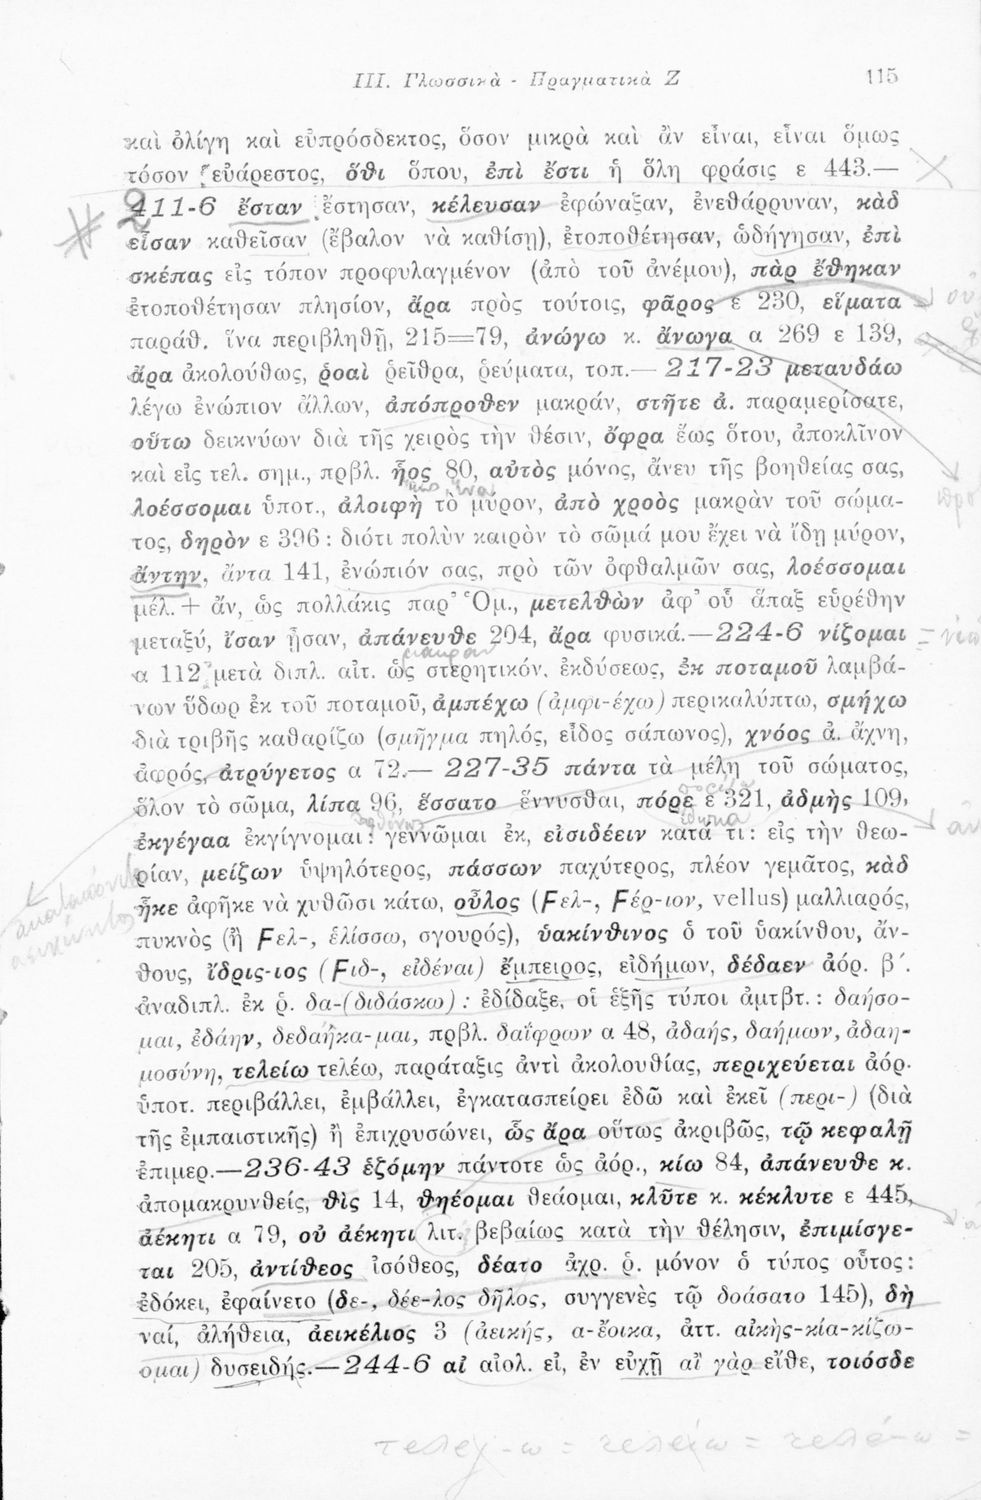 III. Γλωσσικὰ - Πραγματικὰ Ζ 115
καὶ ὀλίγη καὶ εὐπρόσδεκτος, ὅσον μικρὰ καὶ ἂν εἶναι, εἶναι ὅμως
τόσον εὐάρεστος, ὅθι ὅπου, ἐπὶ ἔστι ἡ ὅλη φράσις ε 443.—
211-6 ἔσταν ἔστησαν, κέλευσαν ἐφώναξαν, ἐνεθάρρυναν, κὰδ
εἷσαν καθεῖσαν (ἔβαλον νὰ καθίσῃ), ἐτοποθέτησαν, ὡδήγησαν, ἐπὶ
σκέπας εἰς τόπον προφυλαγμένον (ἀπὸ τοῦ ἀνέμου), πὰρ ἔθηκαν
ἐτοποθέτησαν πλησίον, ἄρα πρὸς τούτοις, φᾶρος ε 230, εἵματα
παράθ. ἵνα περιβληθῇ, 215=79, ἀνώγω κ. ἄνωγα α 269 ε 139,
ἄρα ἀκολούθως, ῥοαὶ ῥεῖθρα, ῥεύματα, τοπ.— 217-23 μεταυδάω
λέγω ἐνώπιον ἄλλων, ἀπόπροθεν μακράν, στῆτε ἀ. παραμερίσατε,
οὕτω δεικνύων διὰ τῆς χειρὸς τὴν θέσιν, ὄφρα ἕως ὅτου, ἀποκλῖνον
καὶ εἰς τελ. σημ., πρβλ. ἧος 80, αὐτὸς μόνος, ἄνευ τῆς βοηθείας σας,
λοέσσομαι ὑποτ., ἀλοιφὴ τὸ μύρον, ἀπὸ χροὸς μακρὰν τοῦ σώμα-
τος, δηρὸν ε 396: διότι πολὺν καιρὸν τὸ σῶμά μου ἔχει νὰ ἴδῃ μύρον,
ἄντην, ἄντα 141, ἐνώπιόν σας, πρὸ τῶν ὀφθαλμῶν σας, λοέσσομαι
μέλ. + ἄν, ὡς πολλάκις παρ' Ὁμ., μετελθὼν ἀφ' οὗ ἅπαξ εὑρέθην
μεταξύ, ἴσαν ᾖσαν, ἀπάνευθε 204, ἄρα φυσικά.—224-6 νίζομαι
α 112 μετὰ διπλ. αἰτ. ὡς στερητικόν, ἐκδύσεως, ἐκ ποταμοῦ λαμβά-
νων ὕδωρ ἐκ τοῦ ποταμοῦ, ἀμπέχω (ἀμφι-έχω) περικαλύπτω, σμήχω
διὰ τριβῆς καθαρίζω (σμῆγμα πηλός, εἶδος σάπωνος), χνόος ἀ. ἄχνη,
ἀφρός, ἀτρύγετος α 72.— 227-35 πάντα τὰ μέλη τοῦ σώματος,
ὅλον τὸ σῶμα, λίπα 96, ἕσσατο ἕννυσθαι, πόρε ε 321, ἀδμὴς 109,
ἐκγέγαα ἐκγίγνομαι: γεννῶμαι ἐκ, εἰσιδέειν κατά τι: εἰς τὴν θεω-
ρίαν, μείζων ὑψηλότερος, πάσσων παχύτερος, πλέον γεμᾶτος, κὰδ
ἧκε ἀφῆκε νὰ χυθῶσι κάτω, οὖλος (Ϝελ-, Ϝέρ-ιον, vellus) μαλλιαρός,
πυκνὸς (ἢ Ϝελ-, ἑλίσσω, σγουρός), ὑακίνθινος ὁ τοῦ ὑακίνθου, ἄν-
θους, ἴδρις-ιος (Ϝιδ-, εἰδέναι) ἔμπειρος, εἰδήμων, δέδαεν ἀόρ. β΄.
ἀναδιπλ. ἐκ ῥ. δα-(διδάσκω): ἐδίδαξε, οἱ ἑξῆς τύποι ἀμτβτ.: δαήσο-
μαι, ἐδάην, δεδαήκα-μαι, πρβλ. δαΐφρων α 48, ἀδαής, δαήμων, ἀδαη-
μοσύνη, τελείω τελέω, παράταξις ἀντὶ ἀκολουθίας, περιχεύεται ἀόρ.
ὑποτ. περιβάλλει, ἐμβάλλει, ἐγκατασπείρει ἐδῶ καὶ ἐκεῖ (περι-) (διὰ
τῆς ἐμπαιστικῆς) ἢ ἐπιχρυσώνει, ὣς ἄρα οὕτως ἀκριβῶς, τῷ κεφαλῇ
ἐπιμερ.—236-43 ἑζόμην πάντοτε ὡς ἀόρ., κίω 84, ἀπάνευθε κ.
ἀπομακρυνθείς, θὶς 14, θηέομαι θεάομαι, κλῦτε κ. κέκλυτε ε 445,
ἀέκητι α 79, οὐ ἀέκητι λιτ. βεβαίως κατὰ τὴν θέλησιν, ἐπιμίσγε-
ται 205, ἀντίθεος ἰσόθεος, δέατο ἀχρ. ῥ. μόνον ὁ τύπος οὗτος:
ἐδόκει, ἐφαίνετο (δε-, δέε-λος δῆλος, συγγενὲς τῷ δοάσατο 145), δὴ
ναί, ἀλήθεια, ἀεικέλιος 3 (ἀεικής, α-ἔοικα, ἀττ. αἰκὴς-κία-κίζω-
ομαι) δυσειδής.—244-6 αἲ αἰολ. εἰ, ἐν εὐχῇ αἲ γὰρ εἴθε, τοιόσδε